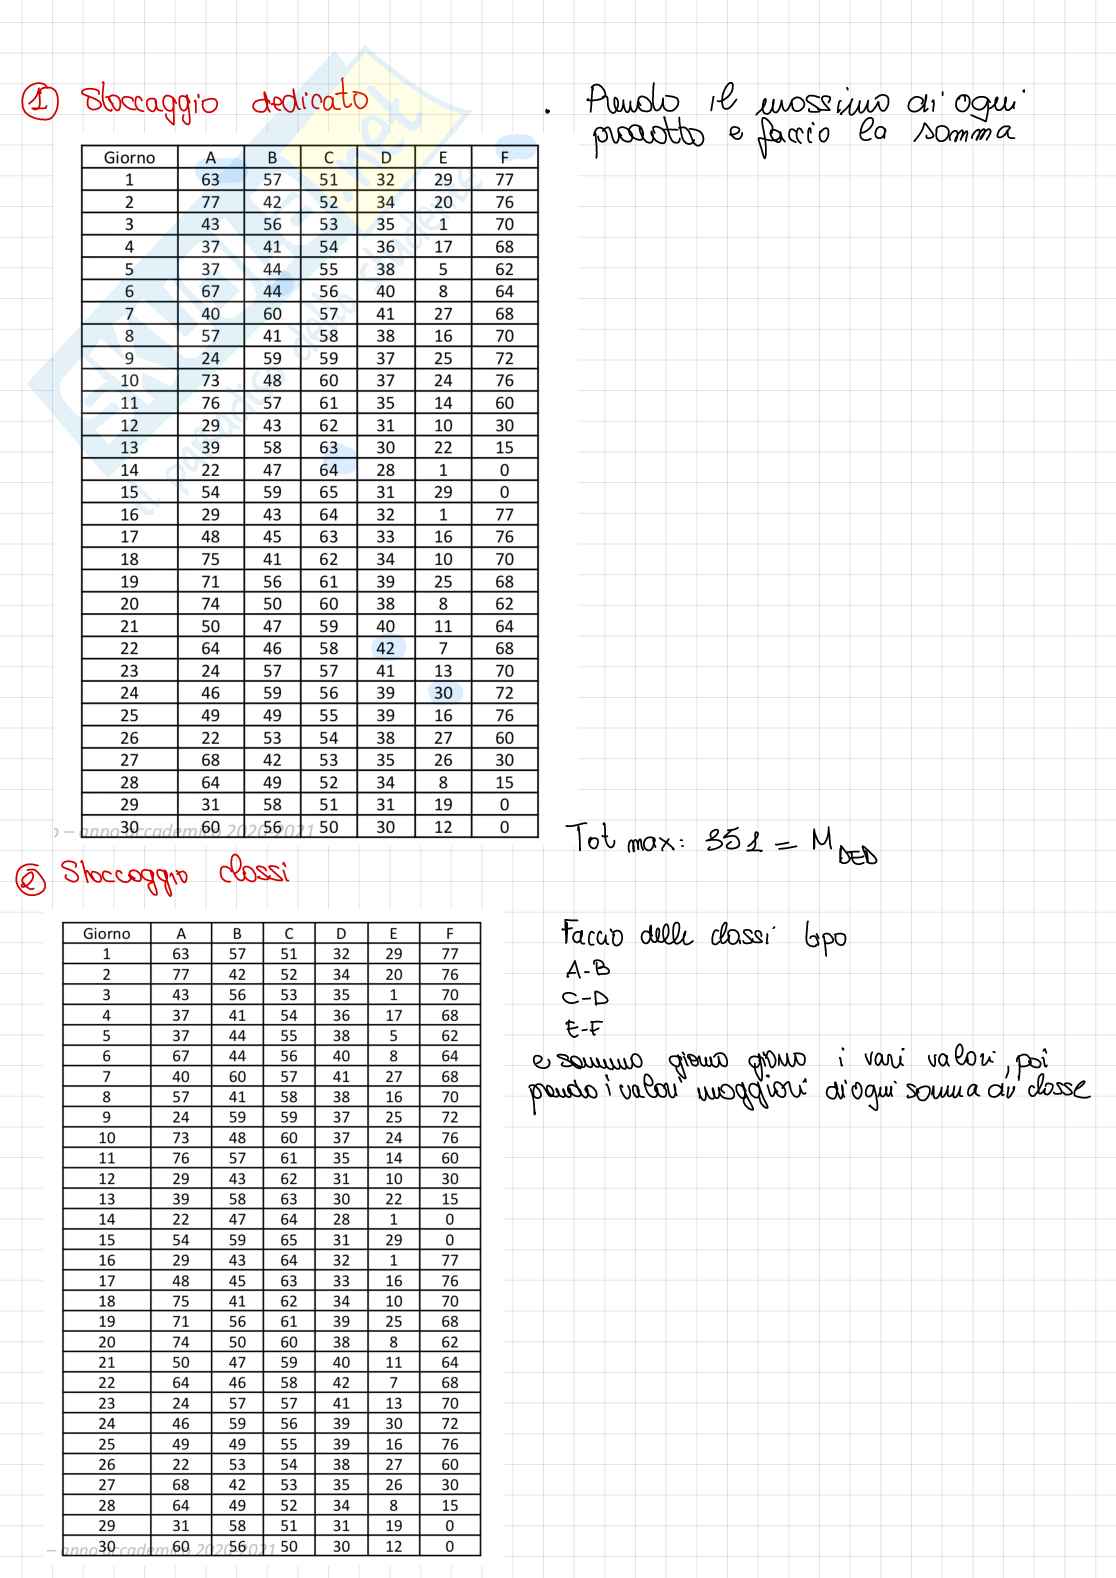 1 Stoccaggio dedicato
. Prendo il massimo di ogni
prodotto e faccio la somma
Giorno A B C D E F
1 63 57 51 32 29 77
2 77 42 52 34 20 76
3 43 56 53 35 1 70
4 37 41 54 36 17 68
5 37 44 55 38 5 62
6 67 44 56 40 8 64
7 40 60 57 41 27 68
8 57 41 58 38 16 70
9 24 59 59 37 25 72
10 73 48 60 37 24 76
11 76 57 61 35 14 60
12 29 43 62 31 10 30
13 39 58 63 30 22 15
14 22 47 64 28 1 0
15 54 59 65 31 29 0
16 29 43 64 32 1 77
17 48 45 63 33 16 76
18 75 41 62 34 10 70
19 71 56 61 39 25 68
20 74 50 60 38 8 62
21 50 47 59 40 11 64
22 64 46 58 42 7 68
23 24 57 57 41 13 70
24 46 59 56 39 30 72
25 49 49 55 39 16 76
26 22 53 54 38 27 60
27 68 42 53 35 26 30
28 64 49 52 34 8 15
29 31 58 51 31 19 0
30 60 56 50 30 12 0
o – anno accademico 2020-2021
Tot max: 351 = M DED
2 Stoccaggio classi
Giorno A B C D E F
1 63 57 51 32 29 77
2 77 42 52 34 20 76
3 43 56 53 35 1 70
4 37 41 54 36 17 68
5 37 44 55 38 5 62
6 67 44 56 40 8 64
7 40 60 57 41 27 68
8 57 41 58 38 16 70
9 24 59 59 37 25 72
10 73 48 60 37 24 76
11 76 57 61 35 14 60
12 29 43 62 31 10 30
13 39 58 63 30 22 15
14 22 47 64 28 1 0
15 54 59 65 31 29 0
16 29 43 64 32 1 77
17 48 45 63 33 16 76
18 75 41 62 34 10 70
19 71 56 61 39 25 68
20 74 50 60 38 8 62
21 50 47 59 40 11 64
22 64 46 58 42 7 68
23 24 57 57 41 13 70
24 46 59 56 39 30 72
25 49 49 55 39 16 76
26 22 53 54 38 27 60
27 68 42 53 35 26 30
28 64 49 52 34 8 15
29 31 58 51 31 19 0
30 60 56 50 30 12 0
– anno accademico 2020-2021
Faccio delle classi tipo
A-B
C-D
E-F
e sommo giorno giorno i vari valori, poi
prendo i valori maggiori di ogni somma di classe
SKUOLA.net
il paradiso dello studente